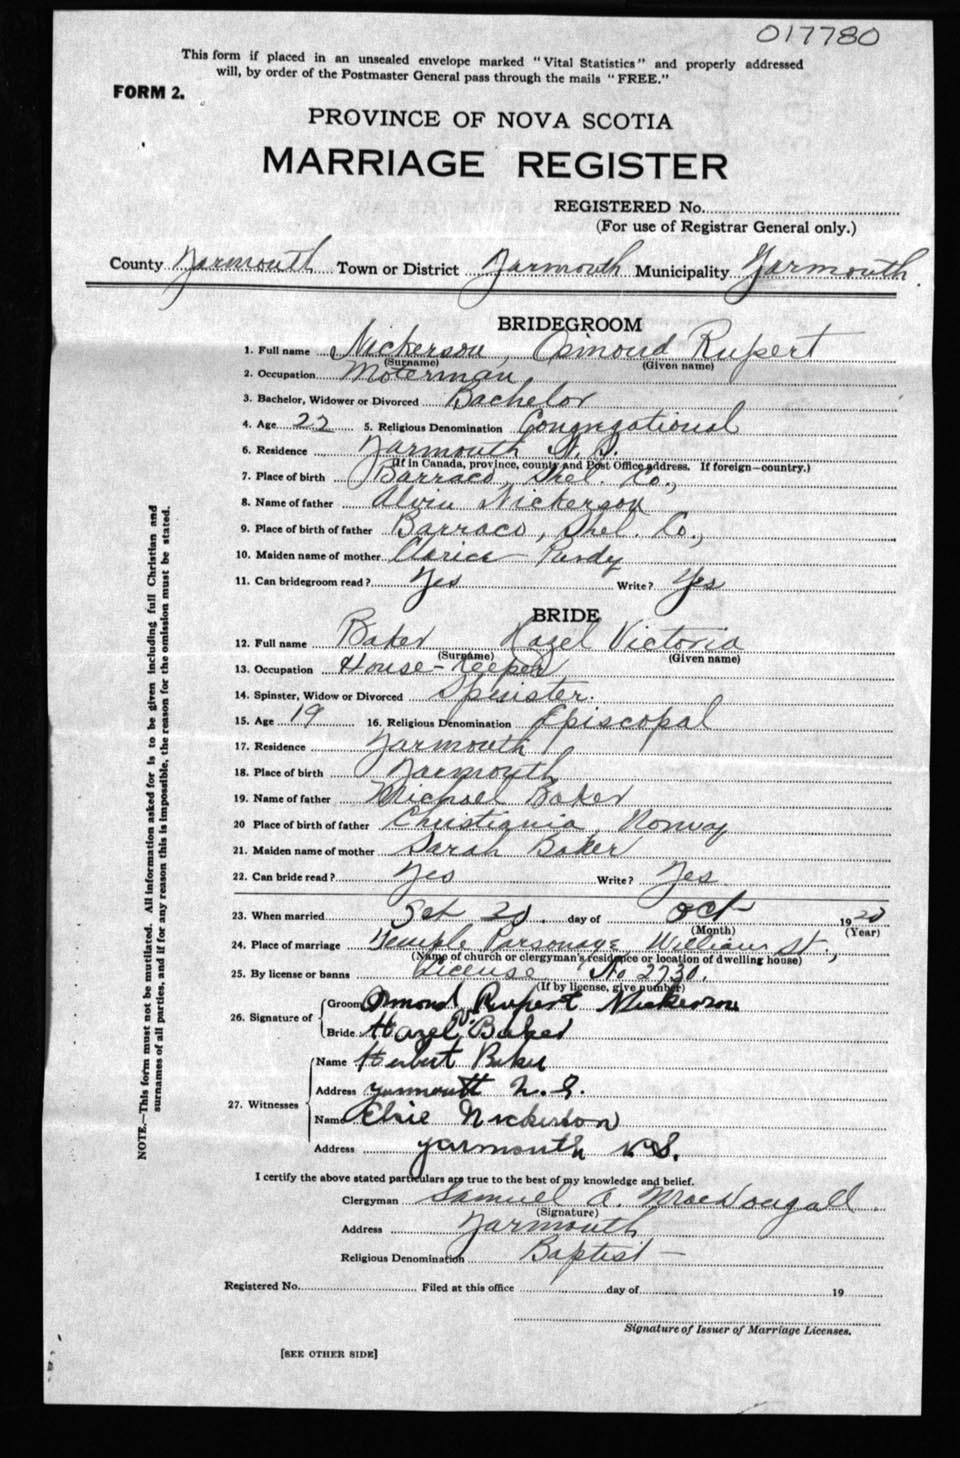 017780
This form if placed in an unsealed envelope marked "Vital Statistics" and properly addressed
will, by order of the Postmaster General pass through the mails "FREE."
FORM 2.
PROVINCE OF NOVA SCOTIA
MARRIAGE REGISTER
REGISTERED No.
(For use of Registrar General only.)
County Yarmouth Town or District Yarmouth Municipality Yarmouth
BRIDEGROOM
1. Full name Nickerson, Osmond Rupert
(Surname) (Given name)
2. Occupation Moterman
3. Bachelor, Widower or Divorced Bachelor
4. Age 22 5. Religious Denomination Congregational
6. Residence Yarmouth N. S.
(If in Canada, province, county and Post Office address. If foreign—country.)
7. Place of birth Barraco, Shel. Co.,
8. Name of father Alvin Nickerson
9. Place of birth of father Barraco, Shel. Co.,
10. Maiden name of mother Clarice Purdy
11. Can bridegroom read? Yes Write? Yes
BRIDE
12. Full name Baker Hazel Victoria
(Surname) (Given name)
13. Occupation House-keeper
14. Spinster, Widow or Divorced Spinster.
15. Age 19 16. Religious Denomination Episcopal
17. Residence Yarmouth
18. Place of birth Yarmouth
19. Name of father Michael Baker
20 Place of birth of father Christiania, Norway
21. Maiden name of mother Sarah Baker
22. Can bride read? Yes Write? Yes
23. When married day of Oct 1920
(Month) (Year)
24. Place of marriage Temple Parsonage William St.,
(Name of church or clergyman's residence or location of dwelling house)
25. By license or banns License No 2730.
(If by license, give number)
26. Signature of Groom Osmond Rupert Nickerson
Bride Hazel V. Baker
27. Witnesses Name Herbert Baker
Address Yarmouth N. S.
Name Elsie Nickerson
Address Yarmouth N.S.
I certify the above stated particulars are true to the best of my knowledge and belief.
Clergyman Samuel A. MacDougall
(Signature)
Address Yarmouth
Religious Denomination Baptist
Registered No. Filed at this office day of 19
Signature of Issuer of Marriage Licenses.
[SEE OTHER SIDE]
NOTE.—This form must not be mutilated. All information asked for is to be given including full Christian and
surnames of all parties, and if for any reason this is impossible, the reason for the omission must be stated.